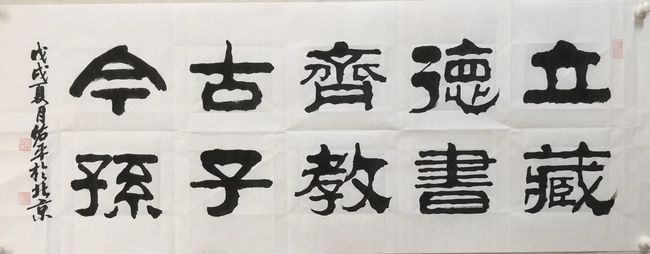 立德齊古今
藏書教子孫
戊戌夏月平於北京